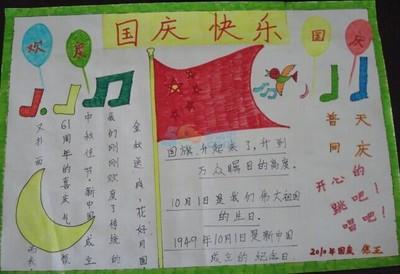 国庆快乐
欢
度
国
庆
金秋送爽,花好月圆
我们刚刚欢度了传统的
中秋佳节,新中国成立
61周年的喜庆
又扑面
国旗升起来了,升到
万众瞩目的高度。
10月1日是我们伟大祖国
的生日。
1949年10月1日是新中国
成立的纪念日
普天
同庆
开心的
跳吧!
唱吧!
2010年国庆